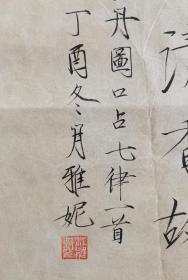 清香故
丹圖口占七律一首
丁酉冬月雅妮